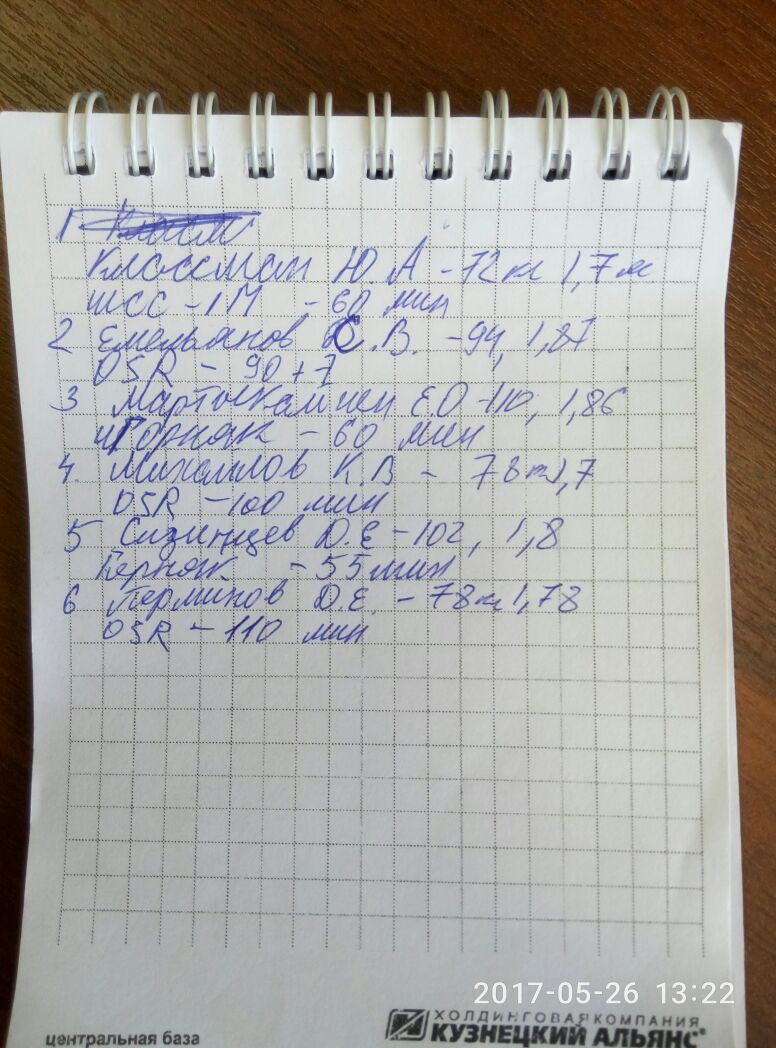 1
Классман Ю.А - 72кг 1,7м
ШСС - 1М - 60 мин
2 Емельянов С.В. - 94, 1,87
OSR - 90 + 7
3 Мартюхин Е.О - 110, 1,86
Горняк - 60 мин
4. Михайлов К.В - 78кг 1,7
OSR - 100 мин
5 Сизинцев Д.Е - 102, 1,8
Горняк - 55 мин
6 Перминов Д.Е. - 78кг 1,78
OSR - 110 мин
2017-05-26 13:22
центральная база
ХОЛДИНГОВАЯ КОМПАНИЯ
КУЗНЕЦКИЙ АЛЬЯНС